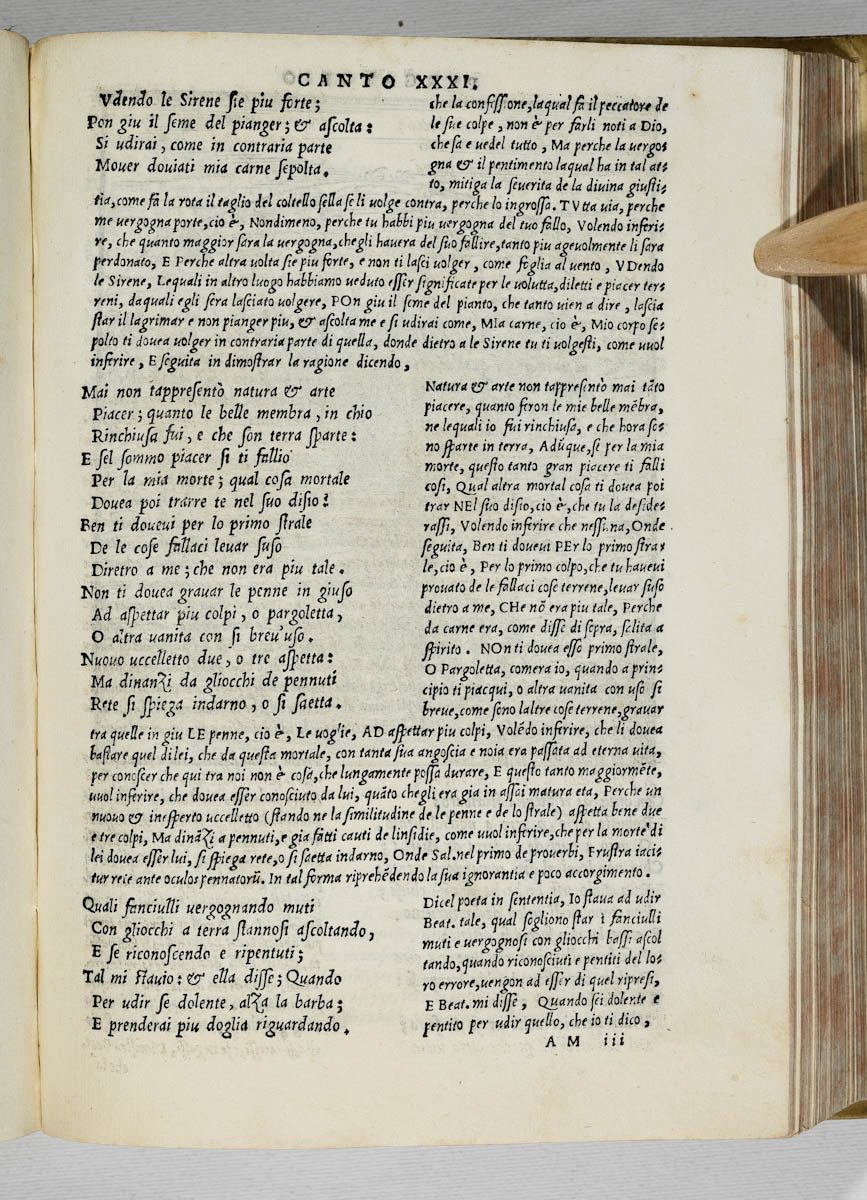 CANTO XXXI.
Vdendo le Sirene sie piu forte;
Pon giu il seme del pianger; & ascolta:
Si udirai, come in contraria parte
Mouer douiati mia carne sepolta.
che la confissione, laqual fa il peccatore de
le sue colpe, non è per farli noti a Dio,
che sa e uede l tutto, Ma perche la uergo-
gna & il pentimento laqual ha in tal at-
to, mitiga la seuerita de la diuina giusti-
tia, come fa la rota il taglio del coltello sella se li uolge contra, perche lo ingrossa. TVtta uia, perche
me uergogna porte, cio è, Nondimeno, perche tu habbi piu uergogna del tuo fallo, Volendo inferi-
re, che quanto maggior sara la uergogna, chegli hauera del suo fallire, tanto piu ageuolmente li sara
perdonato, E Perche altra uolta sie piu forte, e non ti lasci uolger, come foglia al uento, VDendo
le Sirene, Lequali in altro luogo habbiamo ueduto esser significate per le uolutta, diletti e piacer ter-
reni, da quali egli sera lasciato uolgere, POn giu il seme del pianto, che tanto uien a dire, lascia
star il lagrimar e non pianger piu, & ascolta me e si udirai come, MIa carne, cio è, Mio corpo se-
polto ti douea uolger in contraria parte di quella, donde dietro a le Sirene tu ti uolgesti, come uuol
inferire, E seguita in dimostrar la ragione dicendo,
Mai non tappresentò natura & arte
Piacer; quanto le belle membra, in chio
Rinchiusa fui, e che son terra sparte:
E sel sommo piacer si ti fallio
Per la mia morte; qual cosa mortale
Douea poi trarre te nel suo disio?
Ben ti doueui per lo primo strale
De le cose fallaci leuar suso
Diretro a me; che non era piu tale.
Non ti douea grauar le penne in giuso
Ad aspettar piu colpi, o pargoletta,
O altra uanita con si breu'uso.
Nuouo uccelletto due, o tre aspetta:
Ma dinanzi da gliocchi de pennuti
Rete si spiega indarno, o si saetta.
Natura & arte non tappresintò mai tãto
piacere, quanto feron le mie belle mẽbra,
ne lequali io fui rinchiusa, e che hora so-
no sparte in terra, Adũque, se per la mia
morte, questo tanto gran piacere ti falli
cosi, Qual altra mortal cosa ti douea poi
trar NEl suo disio, cio è, che tu la deside-
rassi, Volendo inferire che nessuna, Onde
seguita, Ben ti doueui PEr lo primo stra-
le, cio è, Per lo primo colpo, che tu haueui
prouato de le fallaci cose terrene, leuar suso
dietro a me, CHe nõ era piu tale, Perche
da carne era, come disse di sopra, salita a
spirito. NOn ti douea esso primo strale,
O Pargoletta, comera io, quando a prin-
cipio ti piacqui, o altra uanita con uso si
breue, come sono laltre cose terrene, grauar
tra quelle in giu LE penne, cio è, Le uoglie, AD aspettar piu colpi, Volẽdo inferire, che li douea
bastare quel di lei, che da questa mortale, con tanta sua angoscia e noia era passata ad eterna uita,
per conoscer che qui tra noi non è cosa, che lungamente possa durare, E questo tanto maggiormẽte,
uuol inferire, che douea esser conosciuto da lui, quãto chegli era gia in assai matura eta, Perche un
nuouo & inesperto uccelletto (stando ne la similitudine de le penne e de lo strale) aspetta bene due
e tre colpi, Ma dinãzi a pennuti, e gia fatti cauti de linsidie, come uuol inferire, che per la morte di
lei douea esser lui, si spiega rete, o si saetta indarno, Onde Sal. nel primo de prouerbi, Frustra iaci-
tur rete ante oculos pennatorũ. In tal forma riprehẽdendo la sua ignorantia e poco accorgimento.
Quali fanciulli uergognando muti
Con gliocchi a terra stannosi ascoltando,
E se riconoscendo e ripentuti;
Tal mi stauio: & ella disse; Quando
Per udir se dolente, alza la barba;
E prenderai piu doglia riguardando.
Dice l poeta in sententia, Io staua ad udir
Beat. tale, qual sogliono star i fanciulli
muti e uergognosi con gliocchi bassi ascol
tando, quando riconosciuti e pentiti del lo-
ro errore, uengon ad esser di quel ripresi,
E Beat. mi disse, Quando sei dolente e
pentito per udir quello, che io ti dico,
A M iii